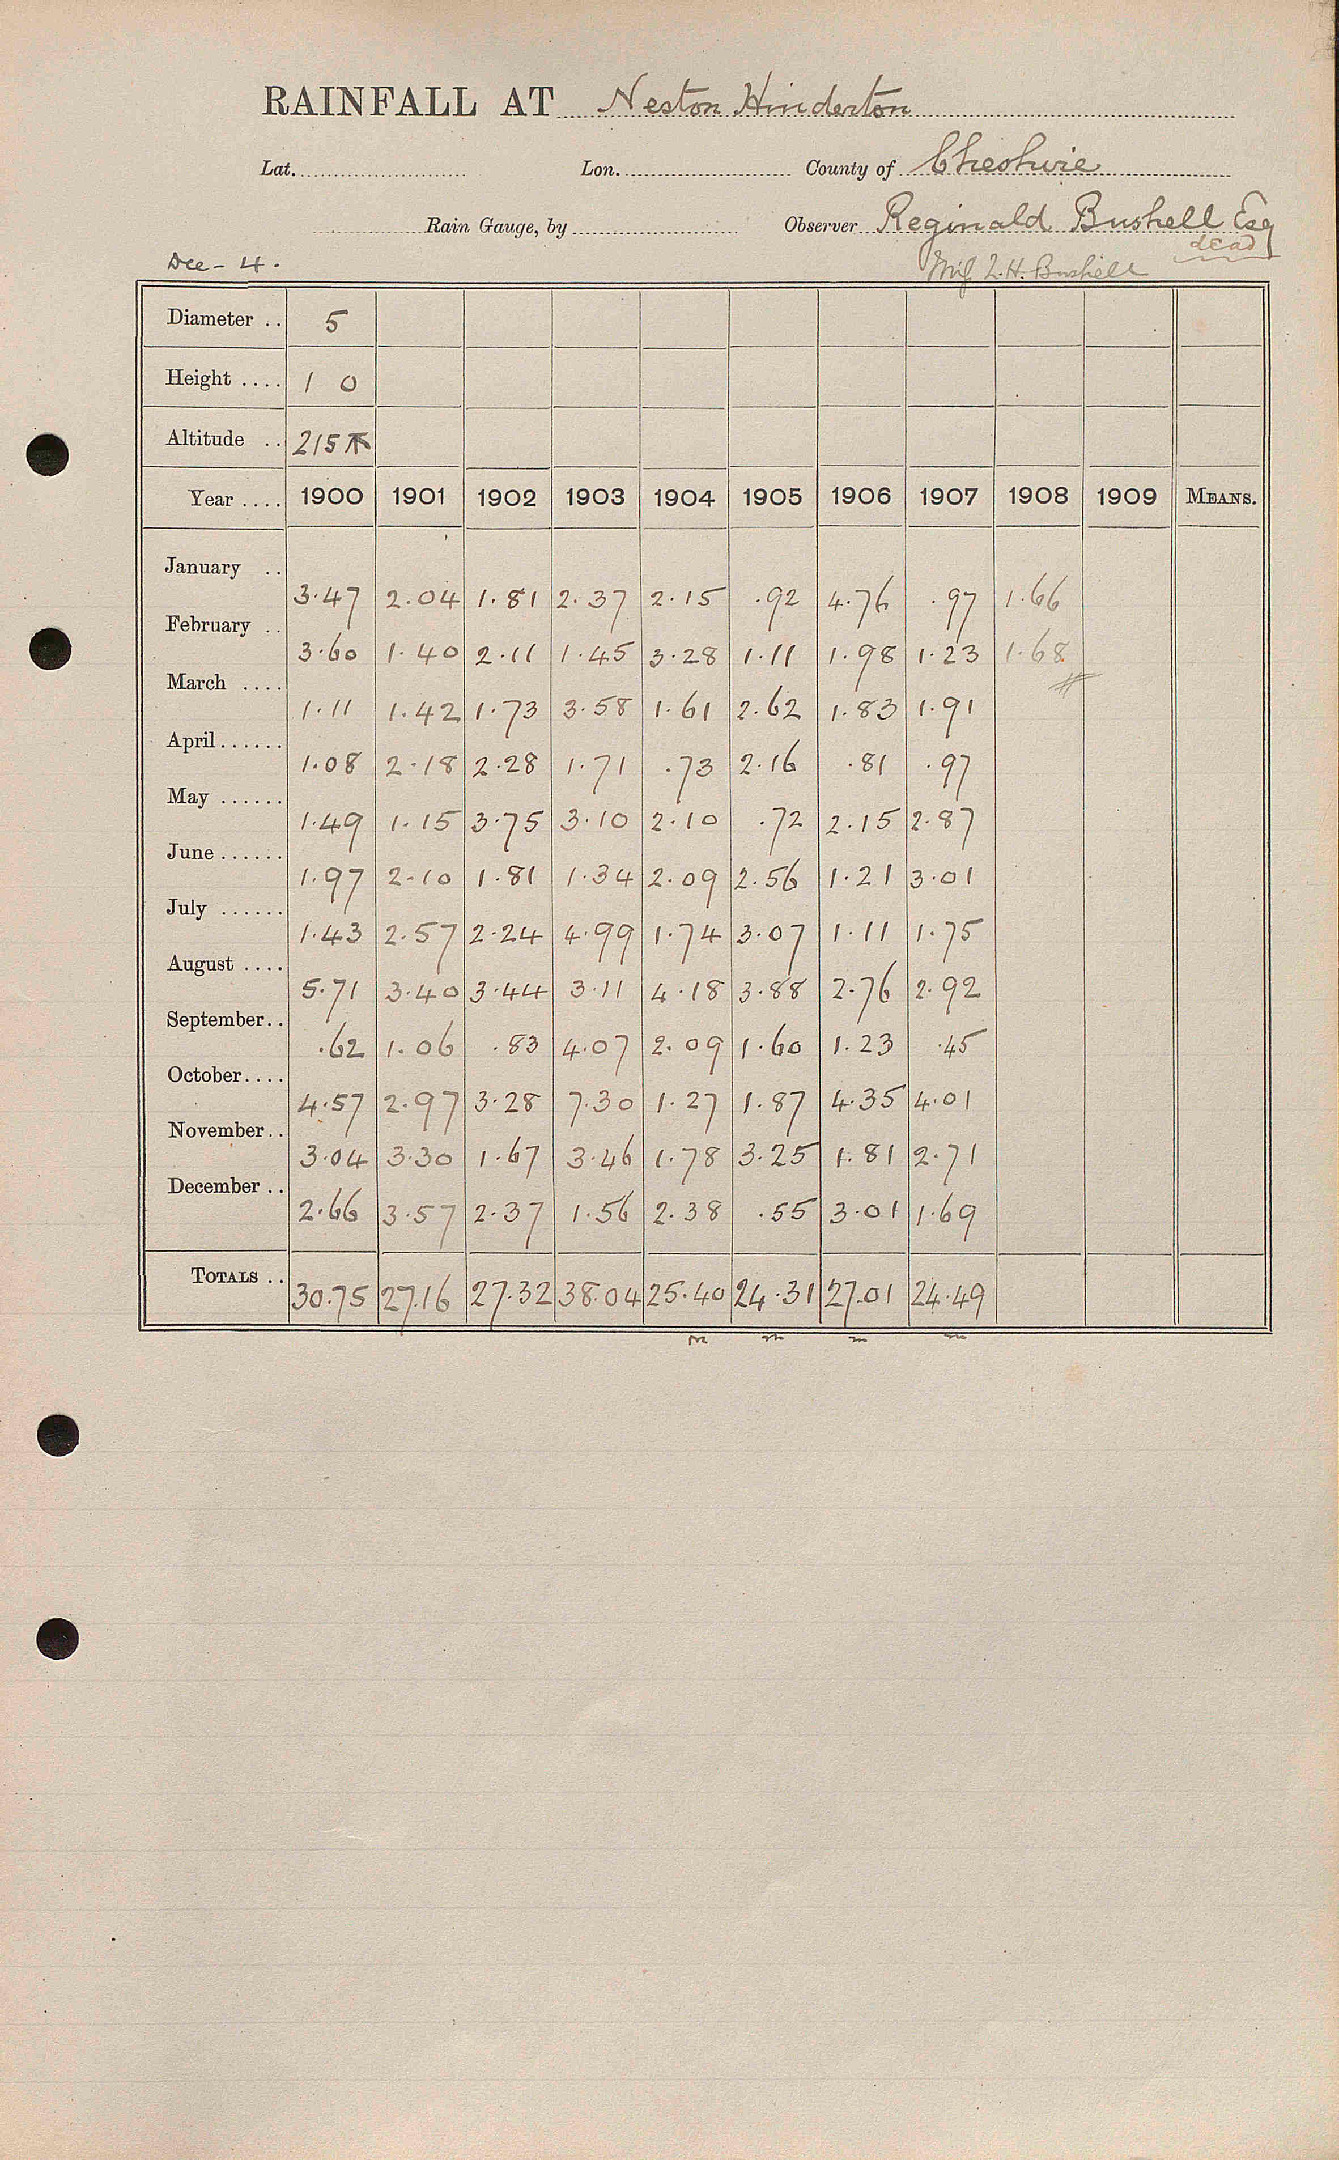 RAINFALL AT Neston Hinderton
Lat. Lon. County of Cheshire
Rain Gauge, by Observer Reginald Bushell Esq
dead
Dec - 4. Bushell
Diameter .. 5
Height .... 1 0
Altitude .. 215
Year .... 1900 1901 1902 1903 1904 1905 1906 1907 1908 1909 MEANS.
January .. 3.47 2.04 1.81 2.37 2.15 .92 4.76 .97 1.66
February .. 3.60 1.40 2.11 1.45 3.28 1.11 1.98 1.23 1.68
March .... 1.11 1.42 1.73 3.58 1.61 2.62 1.83 1.91
April ...... 1.08 2.18 2.28 1.71 .73 2.16 .81 .97
May ...... 1.49 1.15 3.75 3.10 2.10 .72 2.15 2.87
June ...... 1.97 2.10 1.81 1.34 2.09 2.56 1.21 3.01
July ...... 1.43 2.57 2.24 4.99 1.74 3.07 1.11 1.75
August .... 5.71 3.40 3.44 3.11 4.18 3.88 2.76 2.92
September.. .62 1.06 .83 4.07 2.09 1.60 1.23 .45
October.... 4.57 2.97 3.28 7.30 1.27 1.87 4.35 4.01
November.. 3.04 3.30 1.67 3.46 1.78 3.25 1.81 2.71
December .. 2.66 3.57 2.37 1.56 2.38 .55 3.01 1.69
TOTALS .. 30.75 27.16 27.32 38.04 25.40 24.31 27.01 24.49